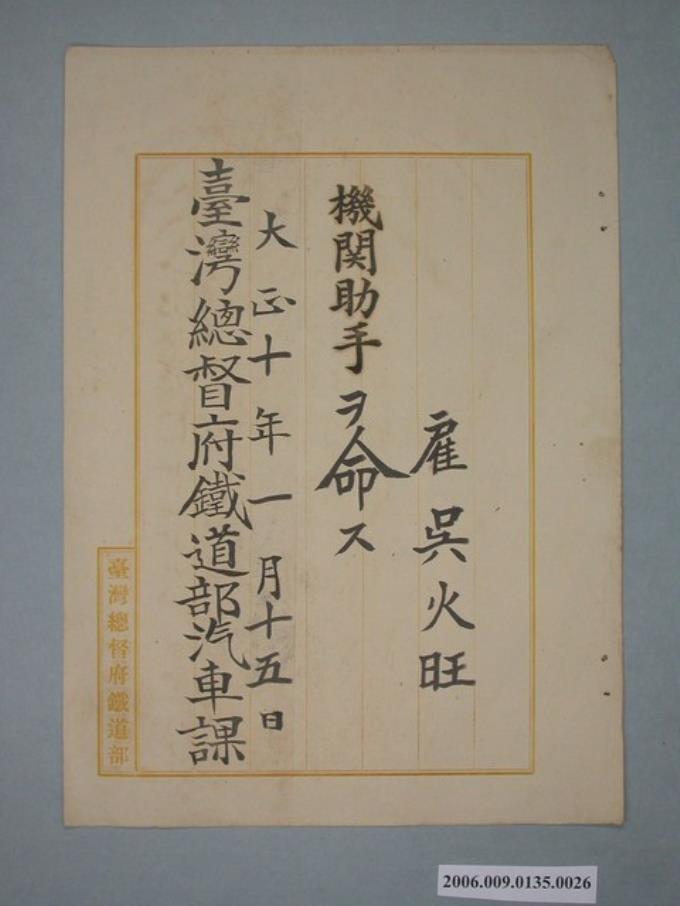 雇 吳火旺
機関助手ヲ命ス
大正十年一月十五日
臺灣總督府鐵道部汽車課
臺灣總督府鐵道部
2006.009.0135.0026